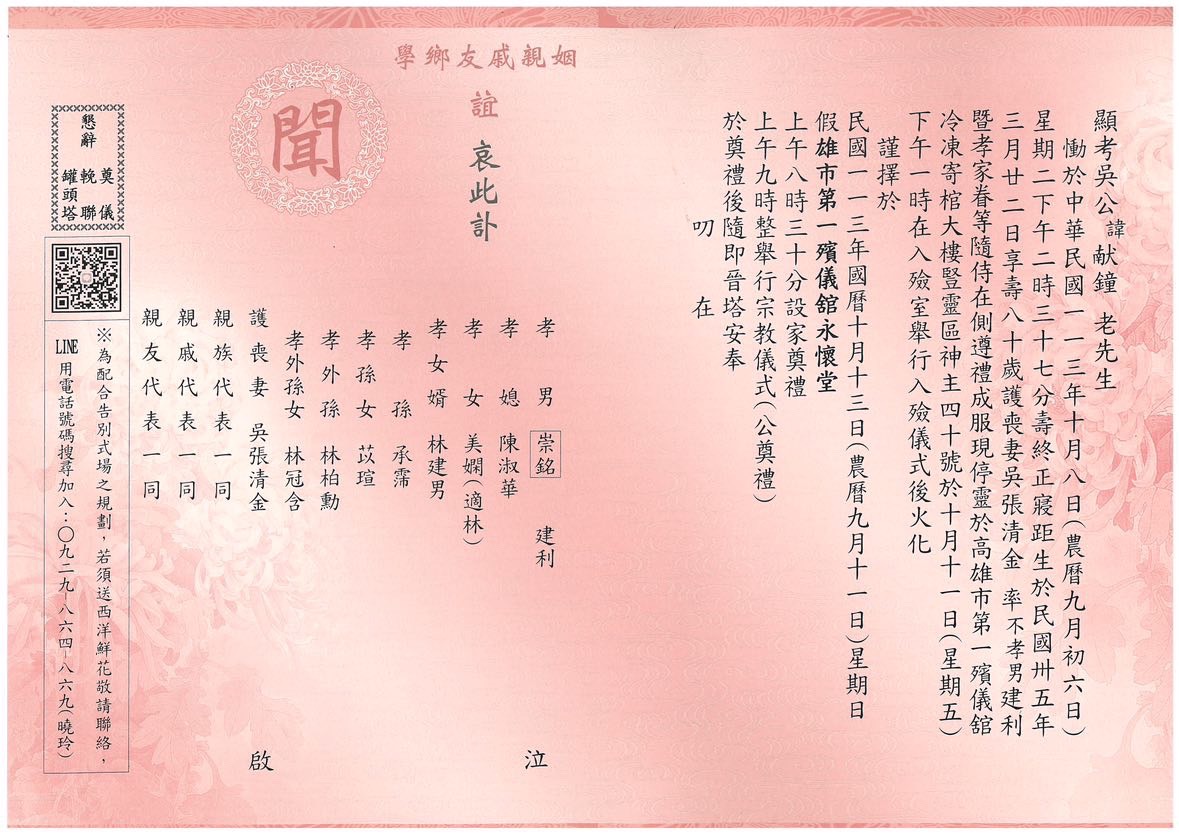 顯考吳公諱献鐘 老先生
慟於中華民國一一三年十月八日(農曆九月初六日)
星期二下午二時三十七分壽終正寢距生於民國卅五年
三月廿二日享壽八十歲護喪妻吳張清金 率不孝男建利
暨孝家眷等隨侍在側遵禮成服現停靈於高雄市第一殯儀舘
冷凍寄棺大樓豎靈區神主四十號於十月十一日(星期五)
下午一時在入殮室舉行入殮儀式後火化
謹擇於
民國一一三年國曆十月十三日(農曆九月十一日)星期日
假雄市第一殯儀舘永懷堂
上午八時三十分設家奠禮
上午九時整舉行宗教儀式(公奠禮)
於奠禮後隨即晉塔安奉
叨 在
姻親戚友鄉學
誼 哀此訃
聞
孝男 崇銘 建利
孝媳 陳淑華
孝女 美嫻(適林)
孝女婿 林建男
孝孫 承霈
孝孫女 苡瑄
孝外孫 林柏勳
孝外孫女 林冠含
泣
護喪妻 吳張清金
親族代表一同
親戚代表一同
親友代表一同
啟
懇辭
奠儀
輓聯
罐頭塔
※為配合告別式場之規劃，若須送西洋鮮花敬請聯絡，
LINE用電話號碼搜尋加入：〇九二九-八六四-八六九(曉玲)